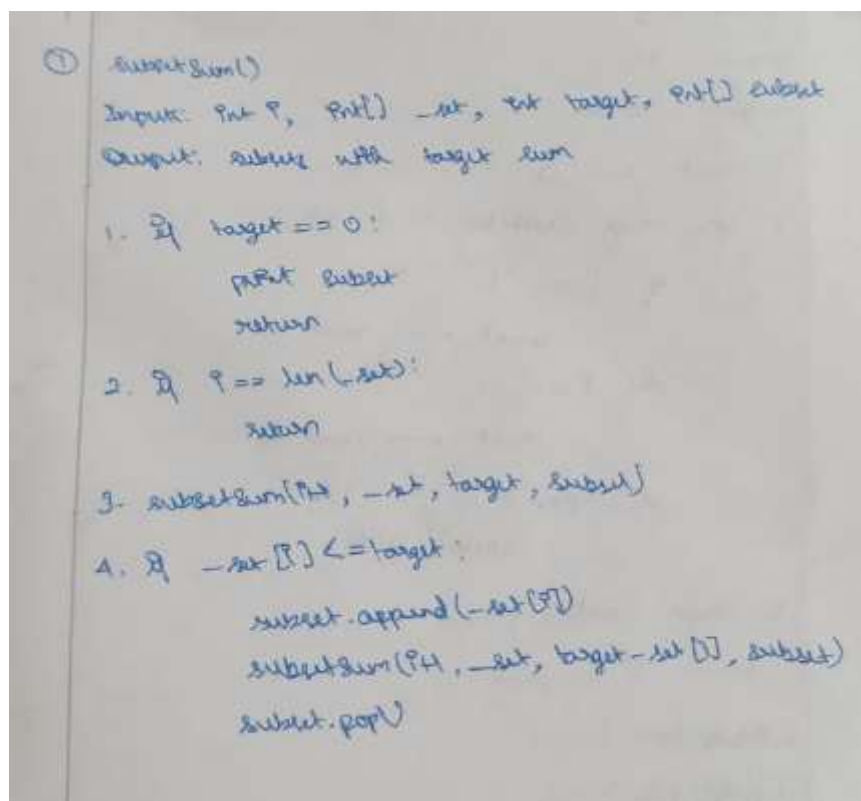 ① subsetSum()
Input: int i, int[] _set, int target, int[] subset
Output: subsets with target sum
1. If target == 0:
print subset
return
2. If i == len(_set):
return
3. subsetSum(i+1, _set, target, subset)
4. If _set[i] <= target:
subset.append(_set[i])
subsetSum(i+1, _set, target-set[i], subset)
subset.pop()